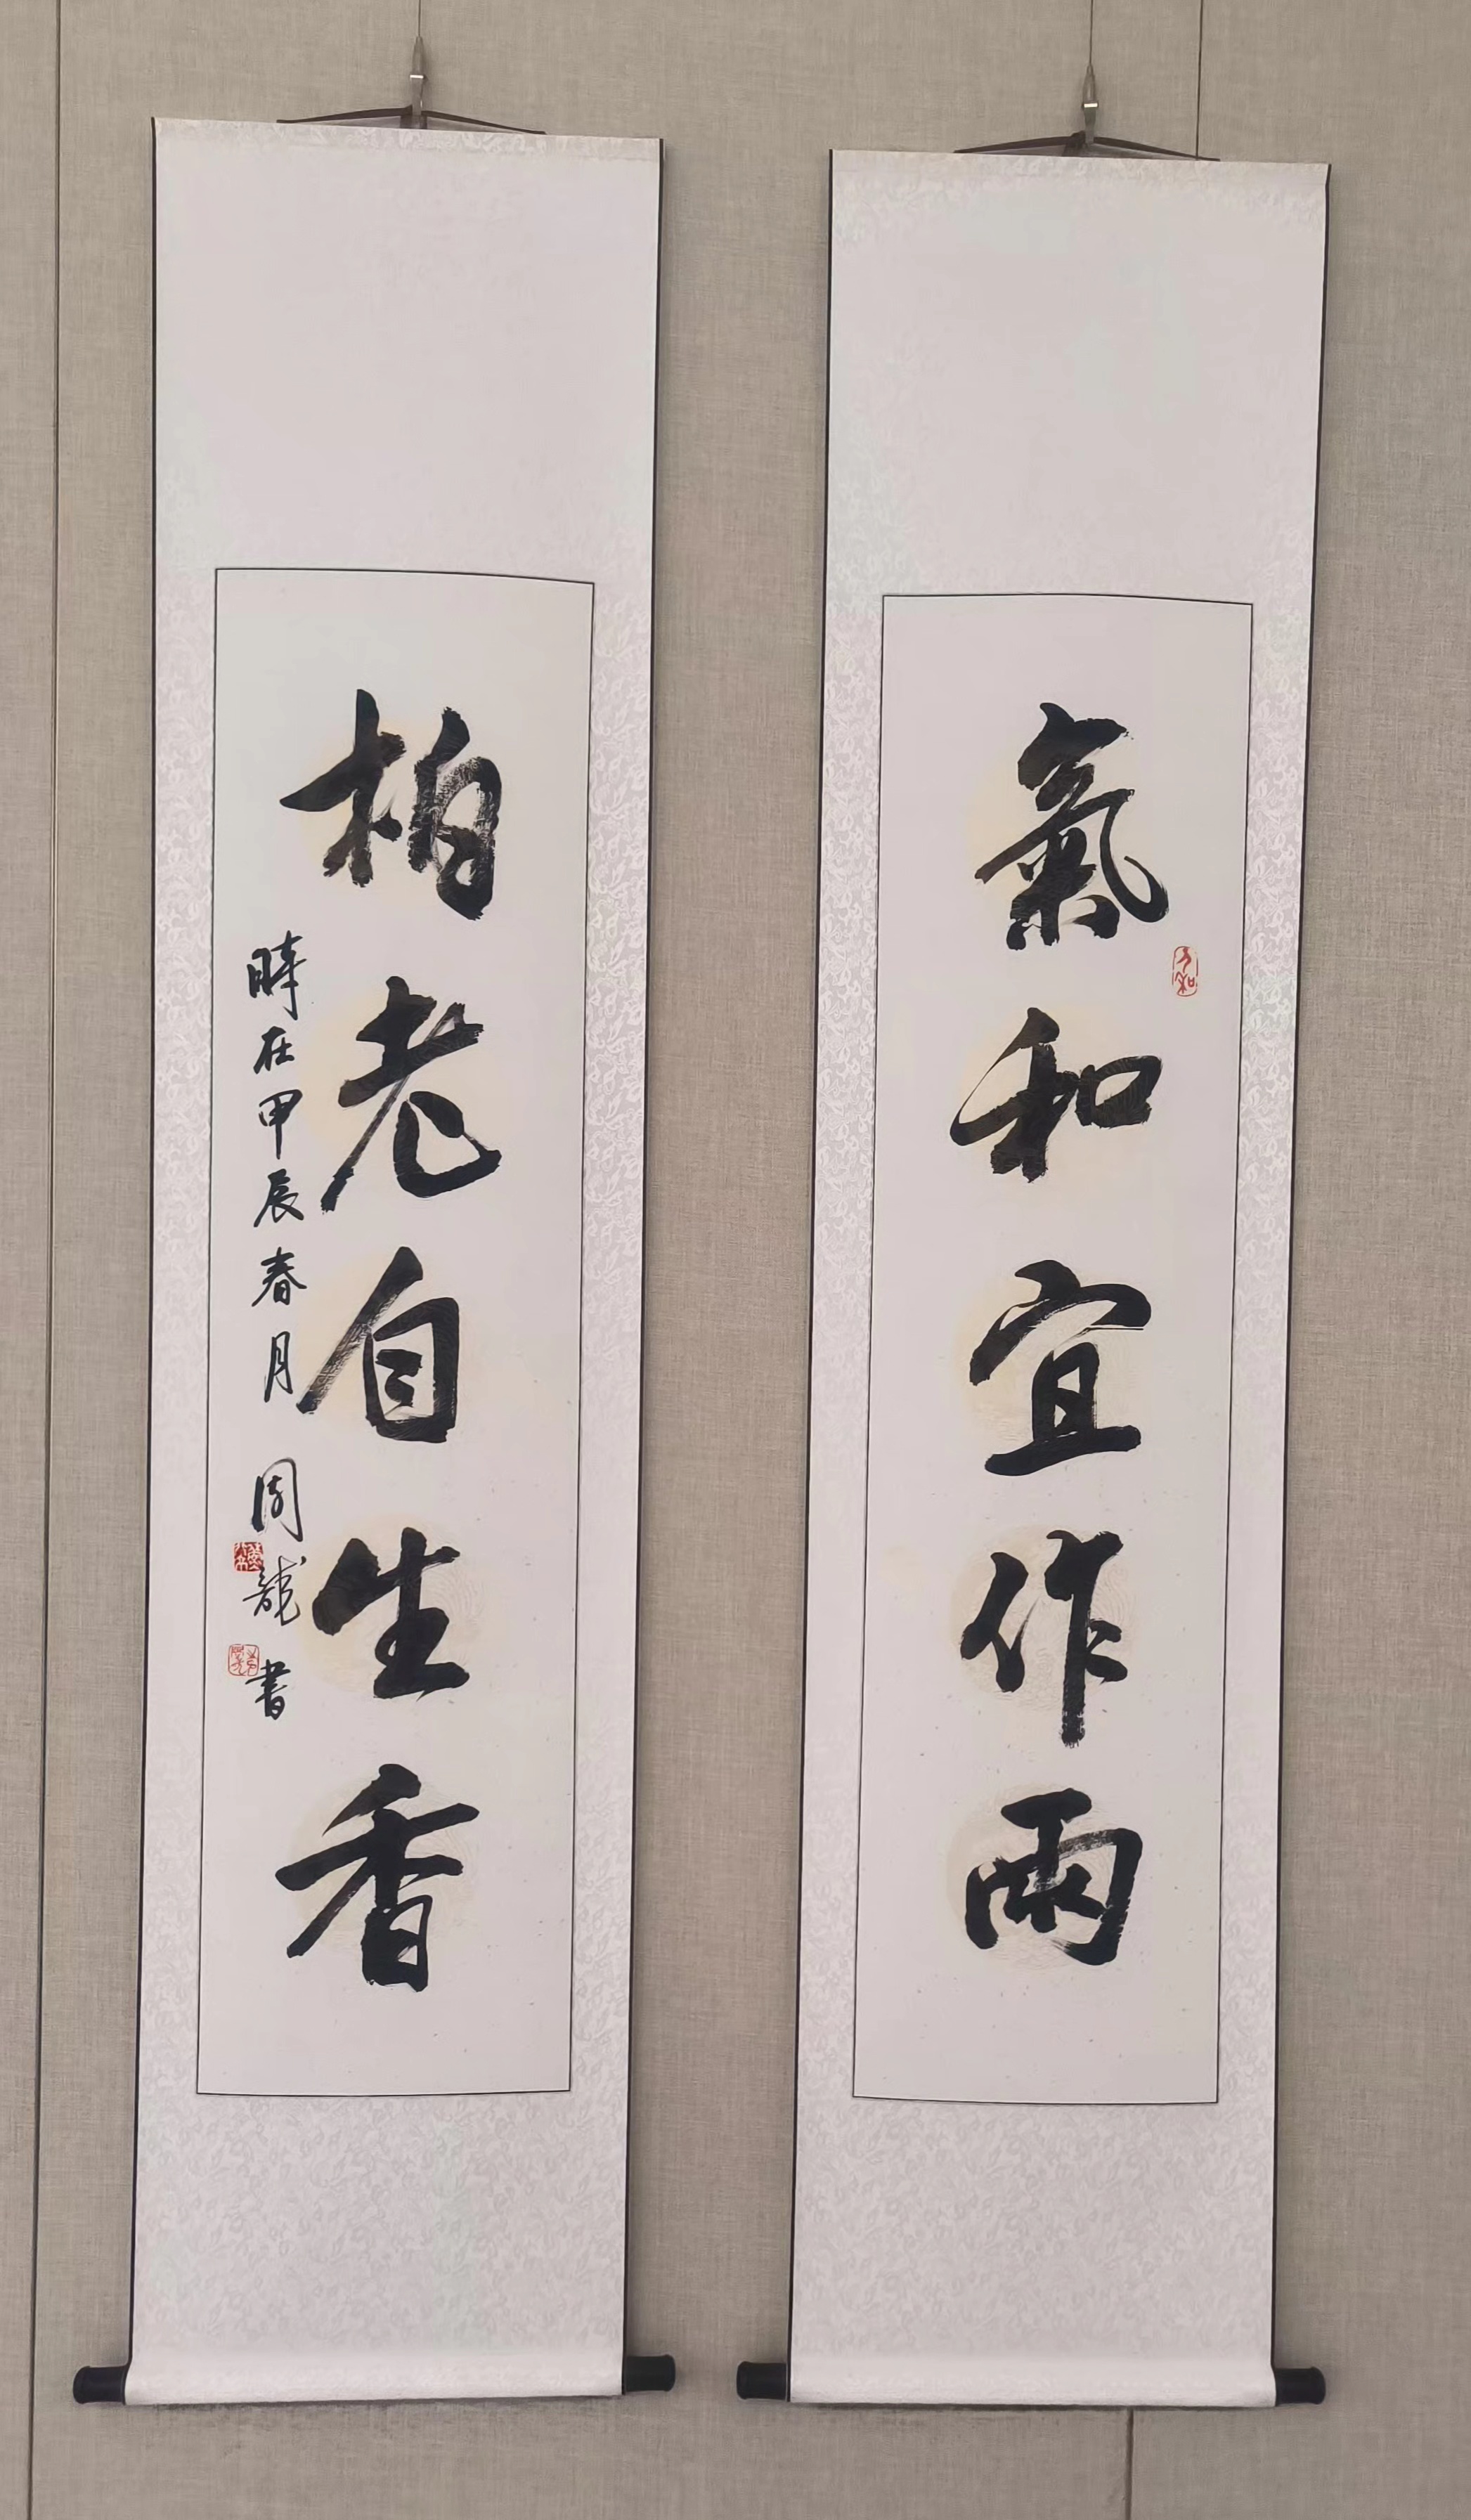 氣和宜作雨
柏老自生香
時在甲辰春月周龍書